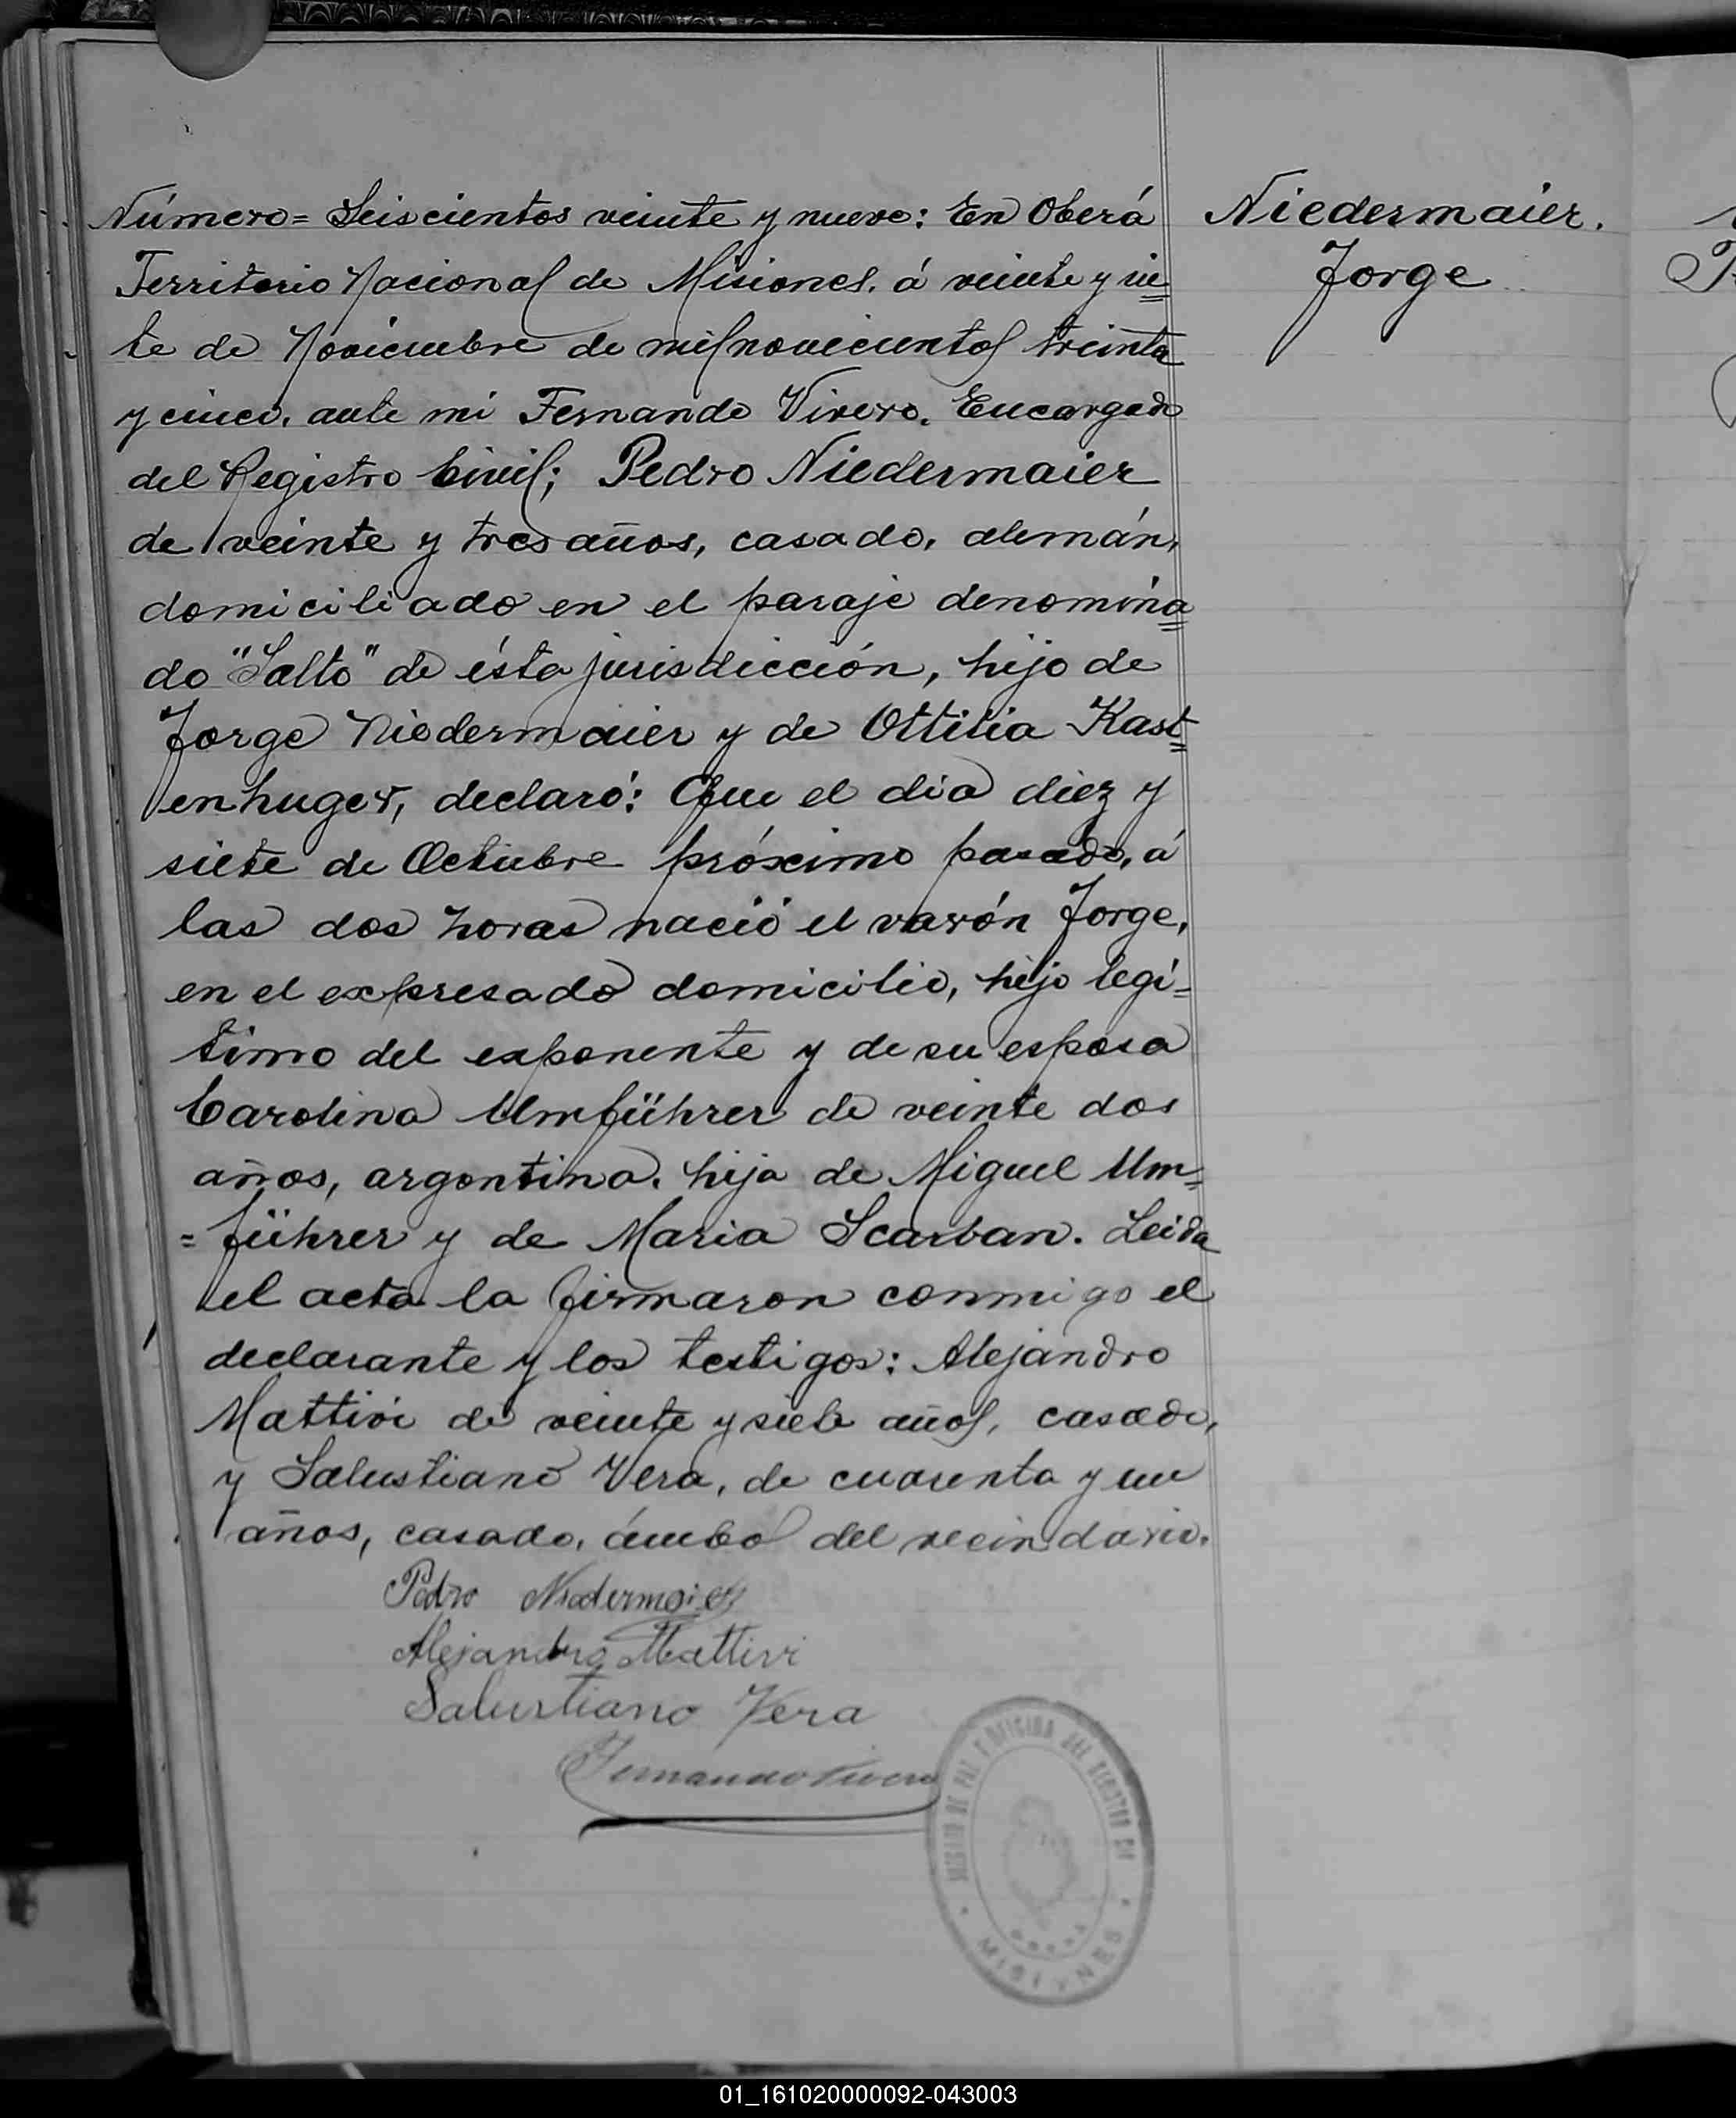 Número= Seiscientos veinte y nueve: En Oberá
Territorio Nacional de Misiones. á veinte y sie=
te de Noviembre de mil novecientos treinta
y cinco, ante mi Fernando Vivero. Encargado
del Registro Civil; Pedro Niedermaier
de veinte y tres años, casado, alemán,
domiciliado en el paraje denomina=
do "Salto" de ésta jurisdicción, hijo de
Jorge Niedermaier y de Ottilia Kast=
enhuger, declaró: Que el día diez y
siete de Octubre próximo pasado, á
las dos horas nació el varón Jorge,
en el expresado domicilio, hijo legí=
timo del exponente y de su esposa
Carolina Umführer de veinte dos
años, argentina. hija de Miguel Um=
=führer y de Maria Scarban. Leida
el acta la firmaron conmigo el
declarante y los testigos: Alejandro
Mattivi de veinte y siete años, casado,
y Salustiano Vera, de cuarenta y un
años, casado, ámbos del vecindario.
Pedro Niedermaier
Alejandro Mattivi
Salustiano Vera
Fernando Vivero
Niedermaier.
Jorge
JUZGADO DE PAZ Y OFICINA DEL REGISTRO CIVIL
MISIONES
01_161020000092-043003